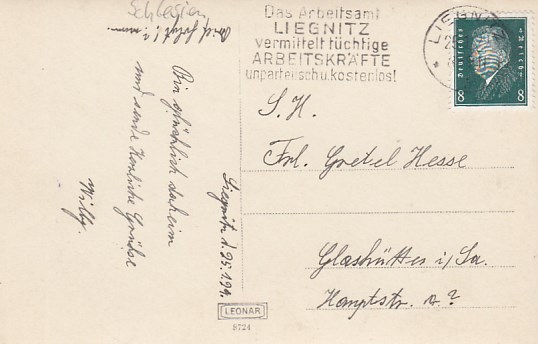 Schlesien
Das Arbeitsamt
LIEGNITZ
vermittelt tüchtige
ARBEITSKRÄFTE
unparteiisch u. kostenlos!
LIEGNITZ
Deutsches Reich
8 8
Bin glücklich daheim
und sende herzliche Grüße
Willy.
Liegnitz, d. 25.1.29.
S. H.
Frl. Gretel Hesse
Glashütte i/Sa.
Hauptstr. a ?
LEONAR
8724